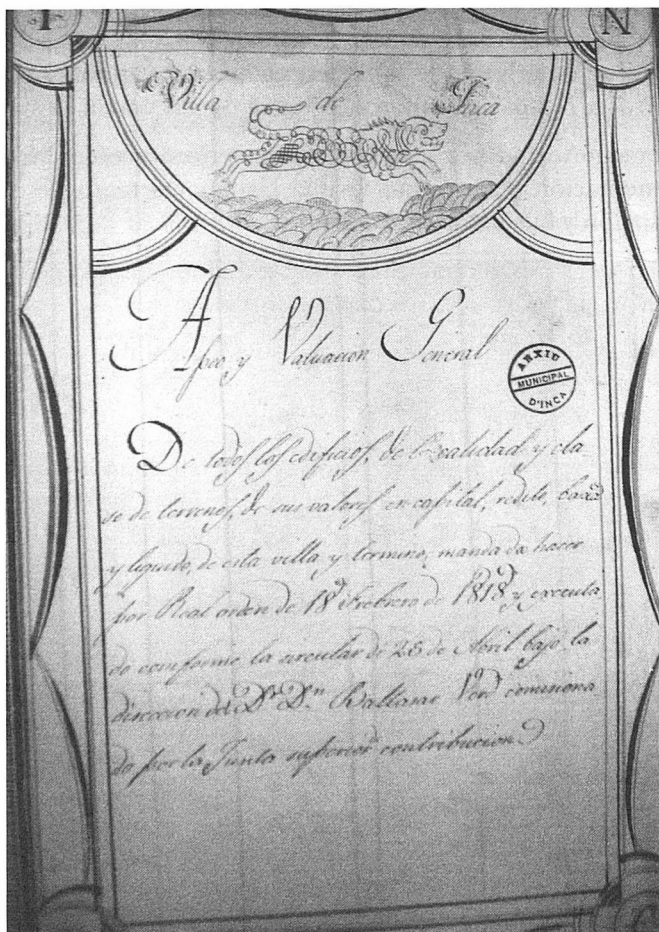 I N
Villa de Inca
Apeo y Valuacion General
ARXIU
MUNICIPAL
D'INCA
De todos los edificios, de la calidad y cla
se de terrenos, de sus valores en capital, redito, baxas
y liquido, de esta villa y termino, mandada hacer
por Real orden de 18 Febrero de 1818 y executa
do comforme la circular de 25 de Abril bajo la
direccion del Dr Dn Baltasar Verd comisiona
do por la Junta superior contribucion.